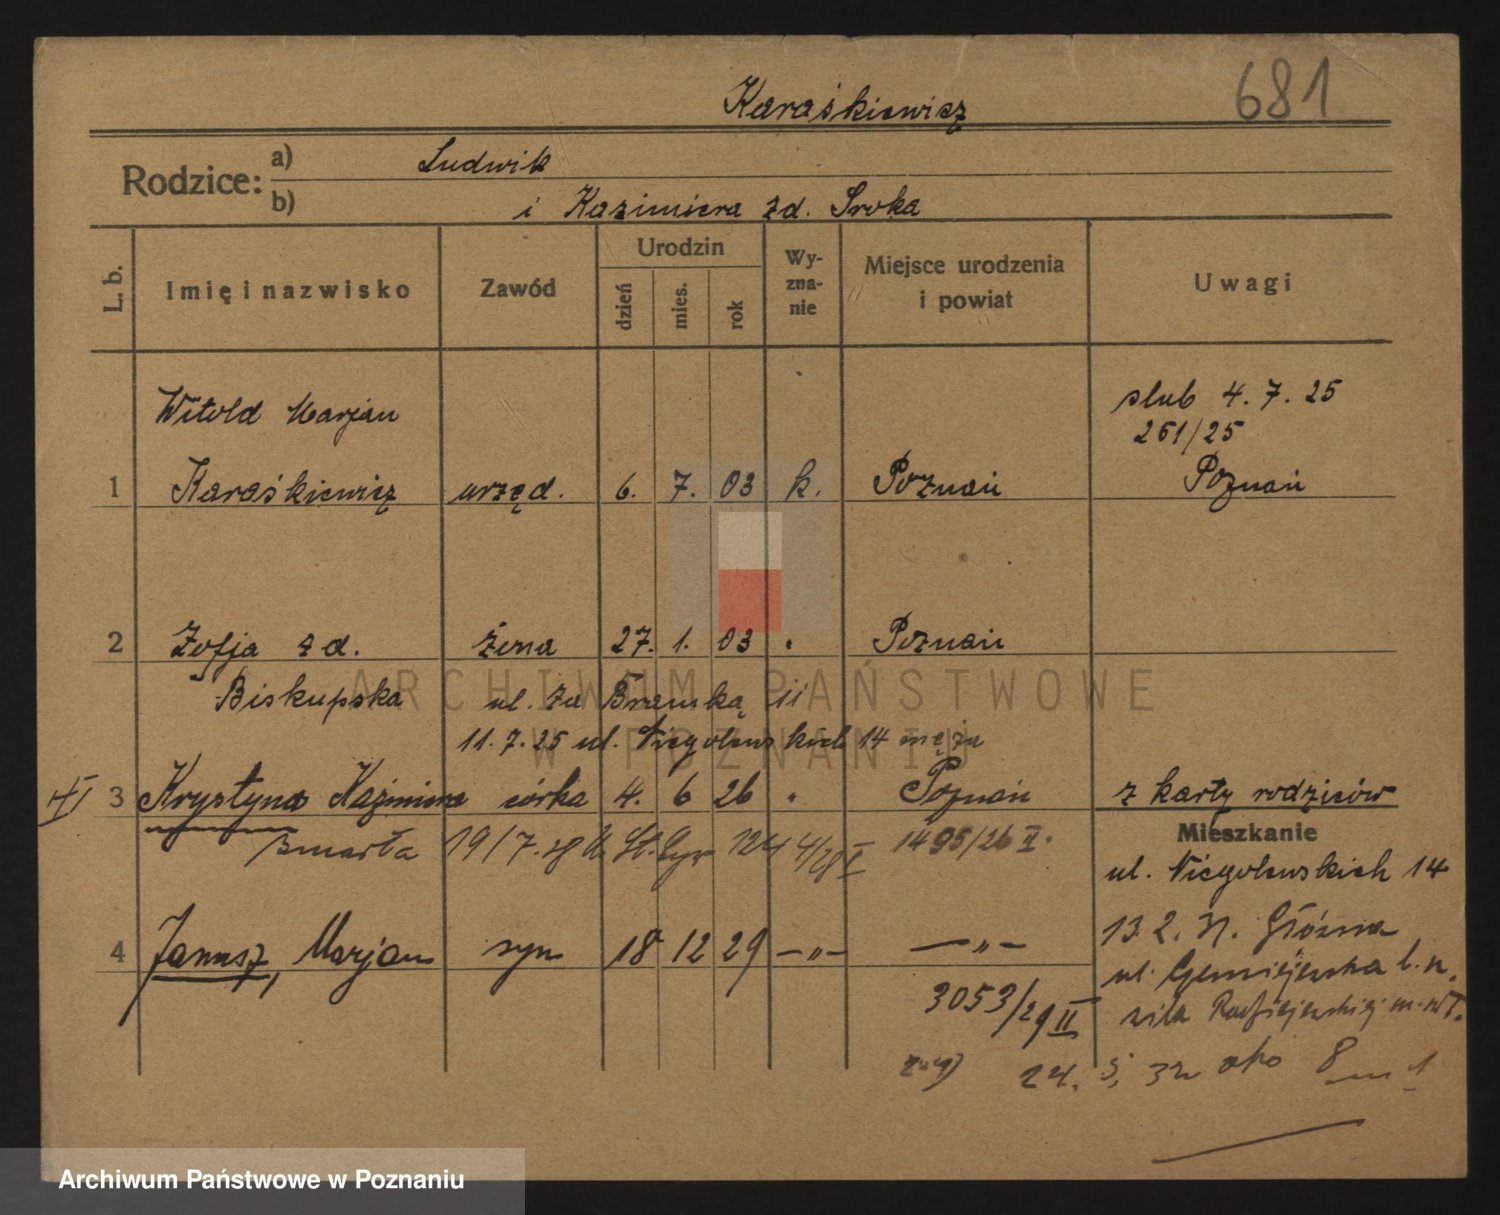 681
Karaśkiewicz
Rodzice:
a) Ludwik
b) i Kazimiera zd. Sroka
L. b.
Imię i nazwisko
Zawód
Urodzin
dzień
mies.
rok
Wy-
zna-
nie
Miejsce urodzenia
i powiat
Uwagi
Witold Marjan
ślub 4. 7. 25
261/25
1 Karaśkiewicz urzęd. 6. 7. 03 k. Poznań Poznań
2 Zofja zd. żona 27. 1. 03 " Poznań
Biskupska ul. Za Bramką 11
11. 7. 25 ul. Niegolewskich 14 męża
3 Krystyna Kazimiera córka 4. 6 26 " Poznań z karty rodziców
Zmarła 19/7. 28 1495/26 II.
Mieszkanie
ul. Niegolewskich 14
4 Janusz, Marjan syn 18 12 29 —"— —"—
3053/29 II
13. 2. Główna
ul. l. n.
24. 5. 32 oko 8
ARCHIWUM PAŃSTWOWE
W POZNANIU
Archiwum Państwowe w Poznaniu